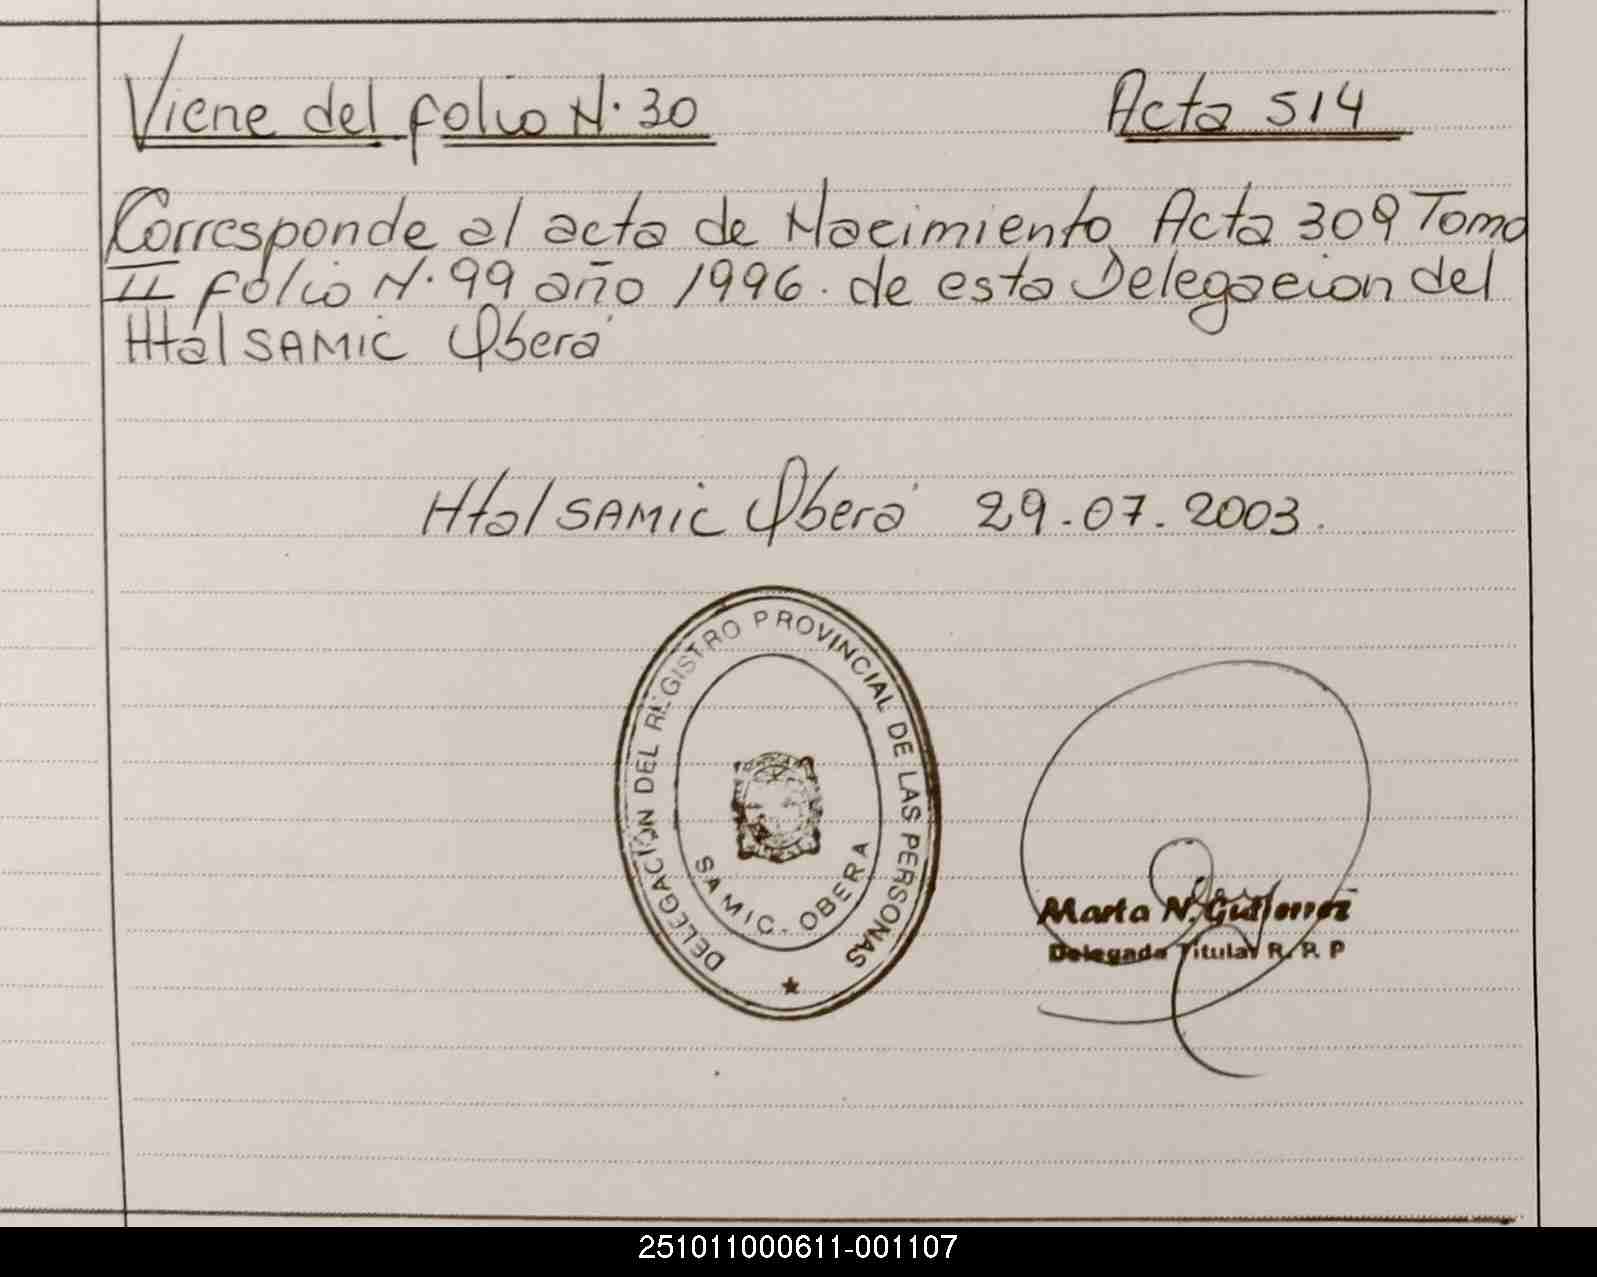 Viene del folio N. 30 Acta 514
Corresponde al acta de Nacimiento Acta 309 Tomo
II folio N. 99 año 1996. de esta Delegacion del
Htal SAMIC Oberá
Htal SAMIC Oberá 29.07.2003.
DELEGACION DEL REGISTRO PROVINCIAL DE LAS PERSONAS
SAMIC. OBERA
Marta N. Gutierrez
Delegada Titular R. R. P
251011000611-001107